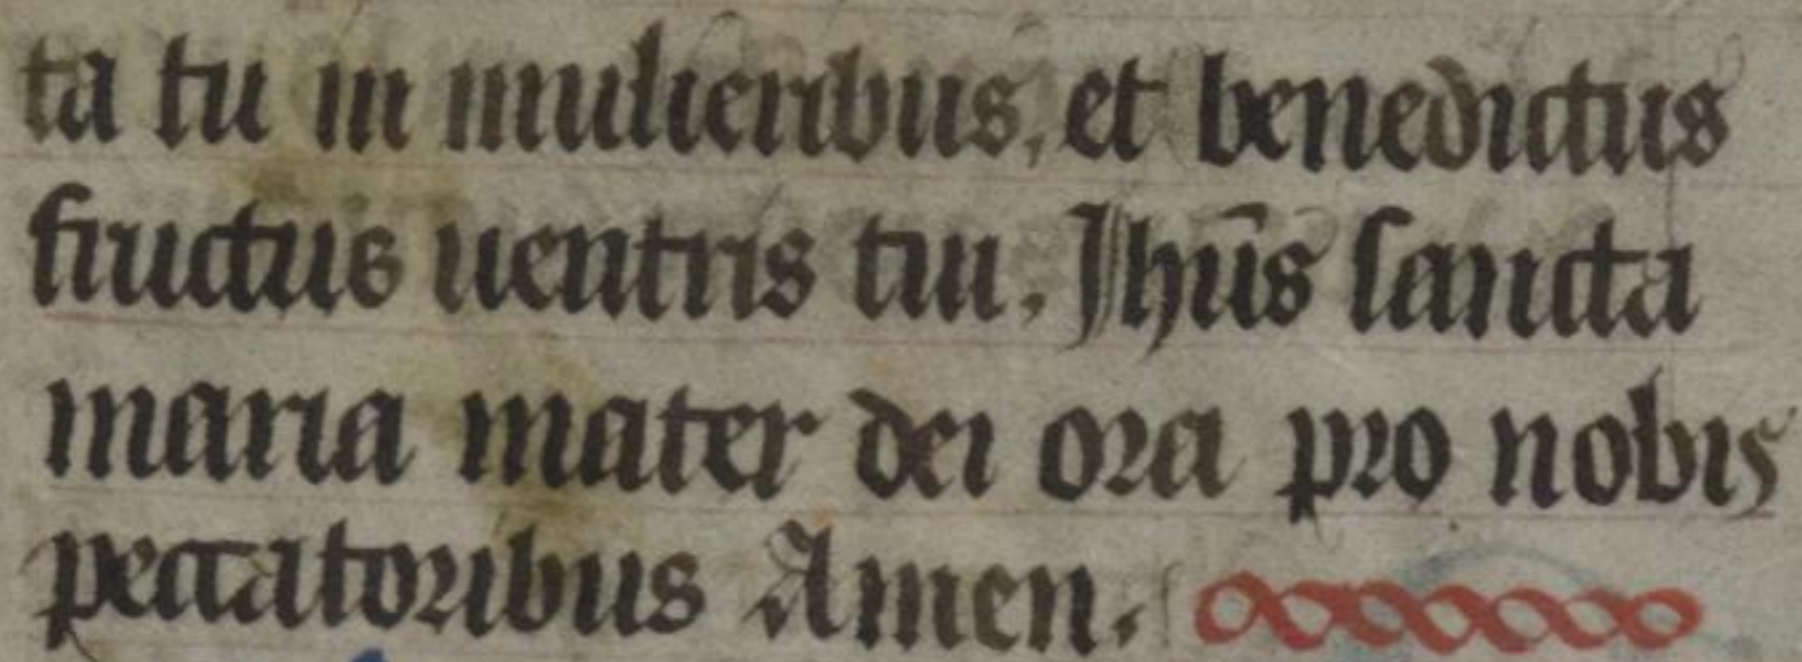 ta tu in mulieribus, et benedictus
fructus uentris tui. Jhūs sancta
maria mater dei ora pro nobis
peccatoribus Amen.